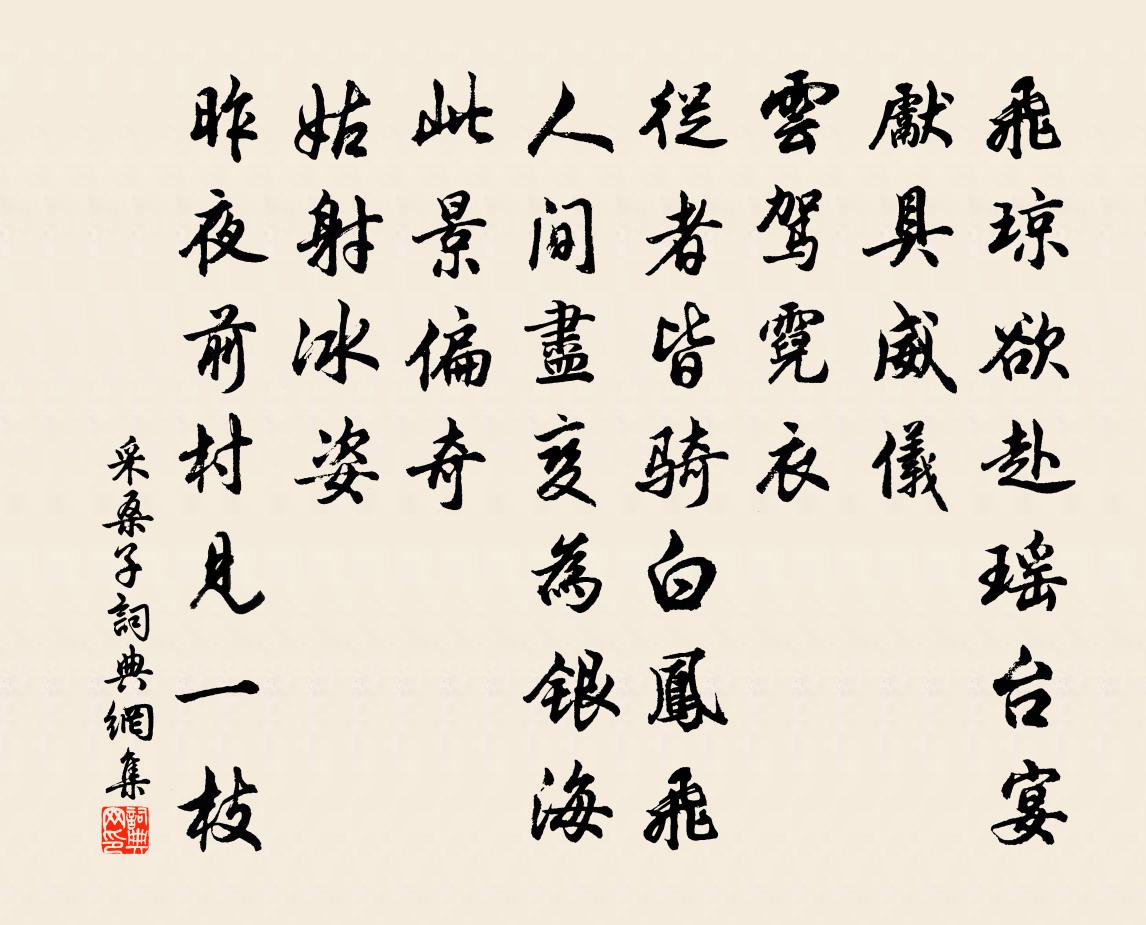 飛琼欲赴瑶台宴
獻具威儀
雲駕霓衣
從者皆騎白鳳飛
人间盡变為銀海
此景偏奇
姑射冰姿
昨夜前村見一枝
采桑子詞典網集
詞典网印